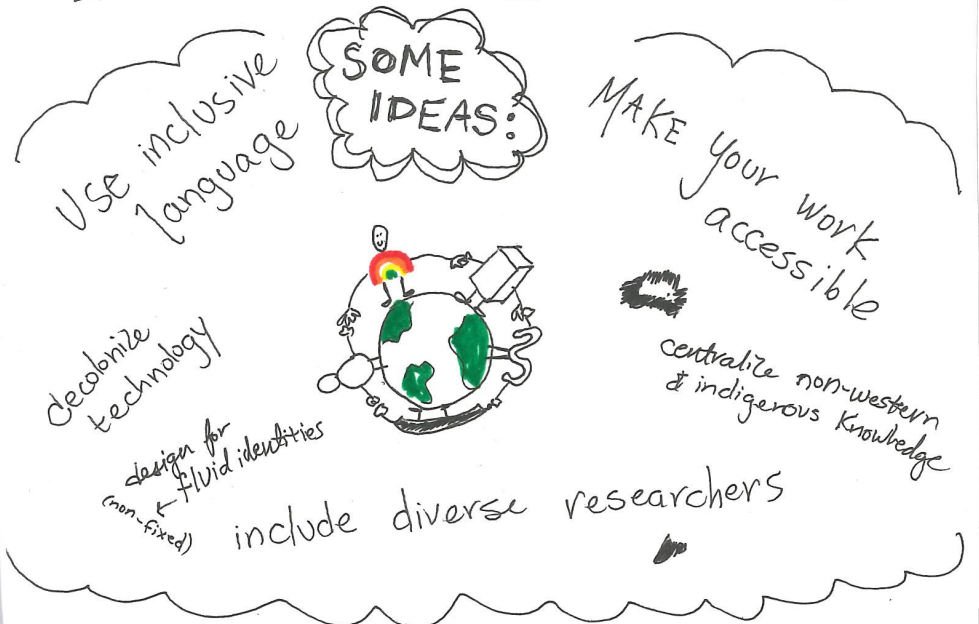 SOME
IDEAS:
Use inclusive
language
MAKE your work
accessible
decolonize
technology
centralize non-western
& indigenous Knowledge
design for
fluid identities
(non-fixed)
include diverse researchers